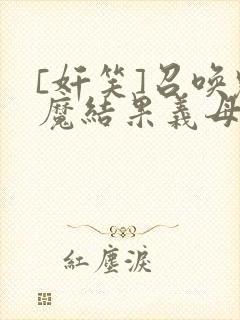 [奸笑]召唤
魔結果義母
紅塵淚